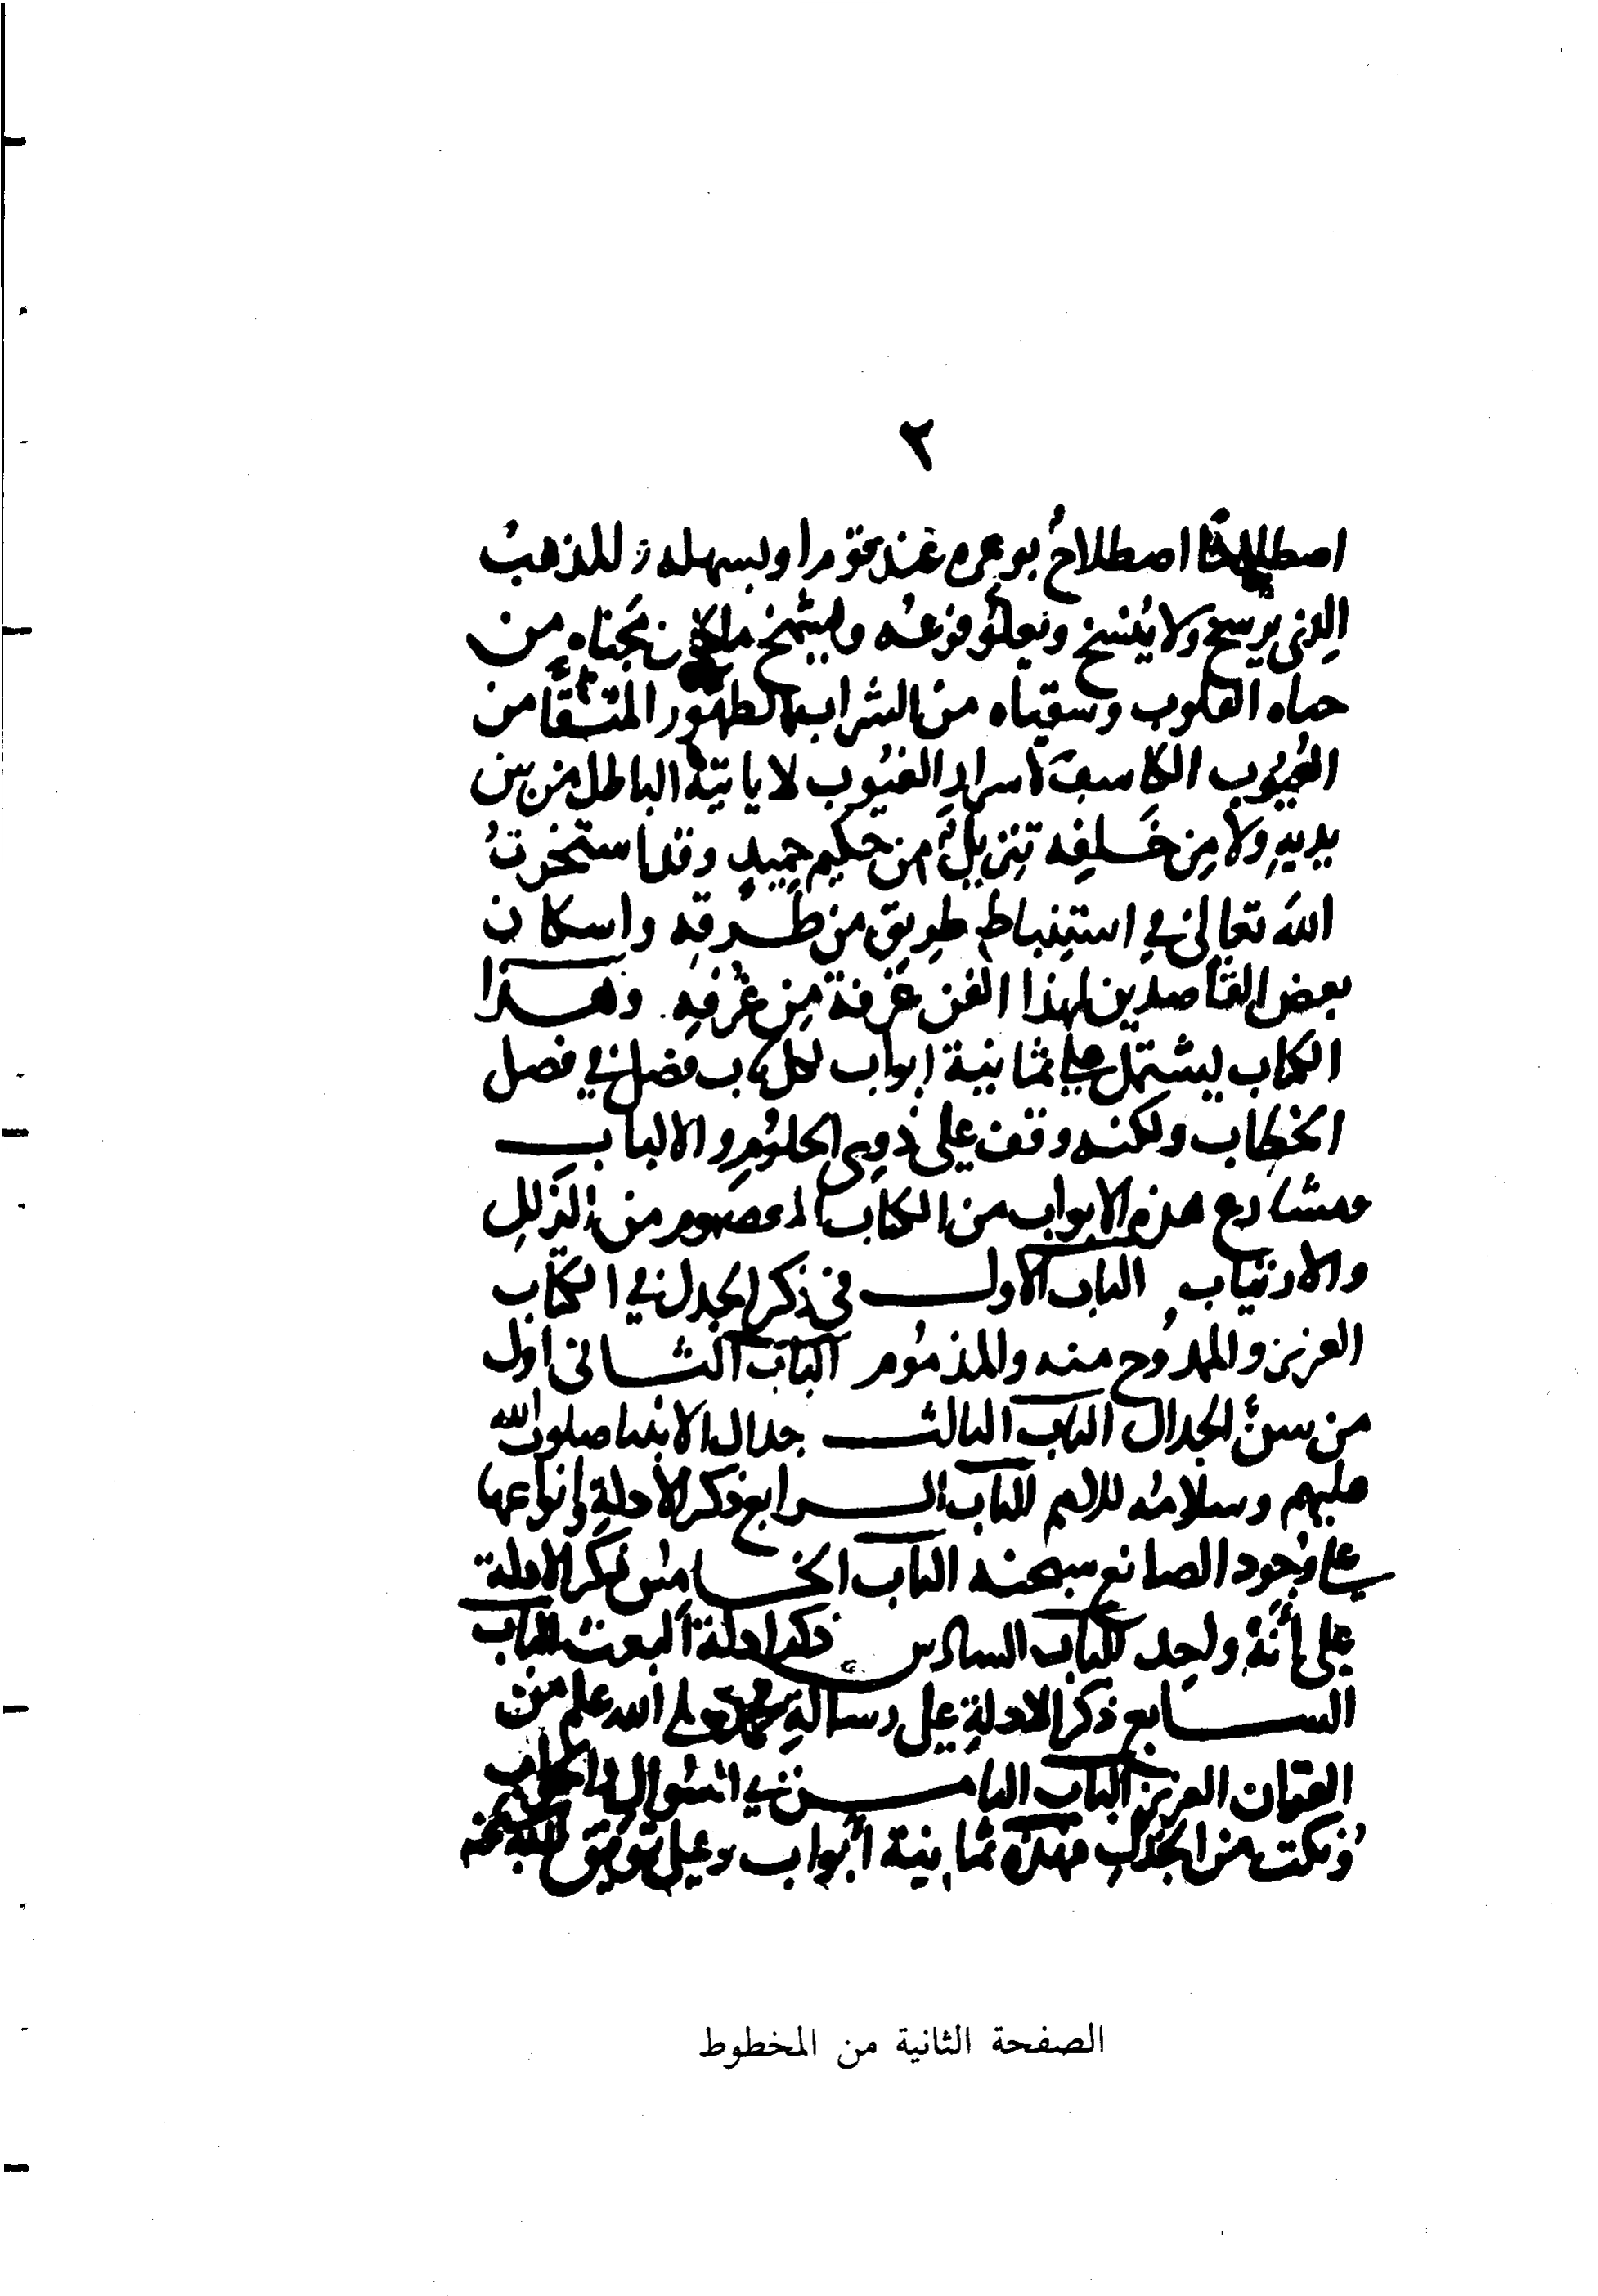 ٢
اصطلاحًا اصطلاحُ يوعره عند قوم اويسهله للمذهب
الذي يرسخ ولا ينسخ ويعلو فرعه ويشمخ ما كان مجناه من
حماه القلوب وسقياه من الشراب الطهور المتقا من
العيوب الكاشف أسرار الغيوب لا ياتيه الباطل من بين
يديه ولا مِن خَلفِه تنزيلٌ من حكيم حميدٍ وقد استخرتُ
اللهَ تعالى في استنباط طريق من طرقه واسكان
بعض القاصدين لهذا الفن غرفة مِن غُرفِهِ وهذا
الكتاب يشتمل على ثمانية ابواب لكل باب فضل في فصل
الخطاب ولكنه وقف على ذوي الحلوم والالباب
ومشارع هذه الابواب من الكتاب المعصوم من الزلل
والارتياب الباب الاول في ذكر الجدل في الكتاب
العزيز والممدُوح منه والمذمُوم الباب الثاني اول
من سنَّ الجدال الباب الثالث جدال الانبيا صلوات الله
عليهم وسلامه للامم الباب الرابع ذكر الأدلةِ وانواعها
على وجود الصانع سبحنه الباب الخامس ذكر الادلة
على أنَّهُ واحِد الباب السادس ذكر ادلة البعث الباب
السابع ذكر الادلةِ على رسالةِ محمد صلى الله علم من
القرآن العزيز الباب الثامن في السُوال والجواب
ونُكت من الجدل فهذه ثمانية أبواب وعلى توفيق الله سبحنه
الصفحة الثانية من المخطوط